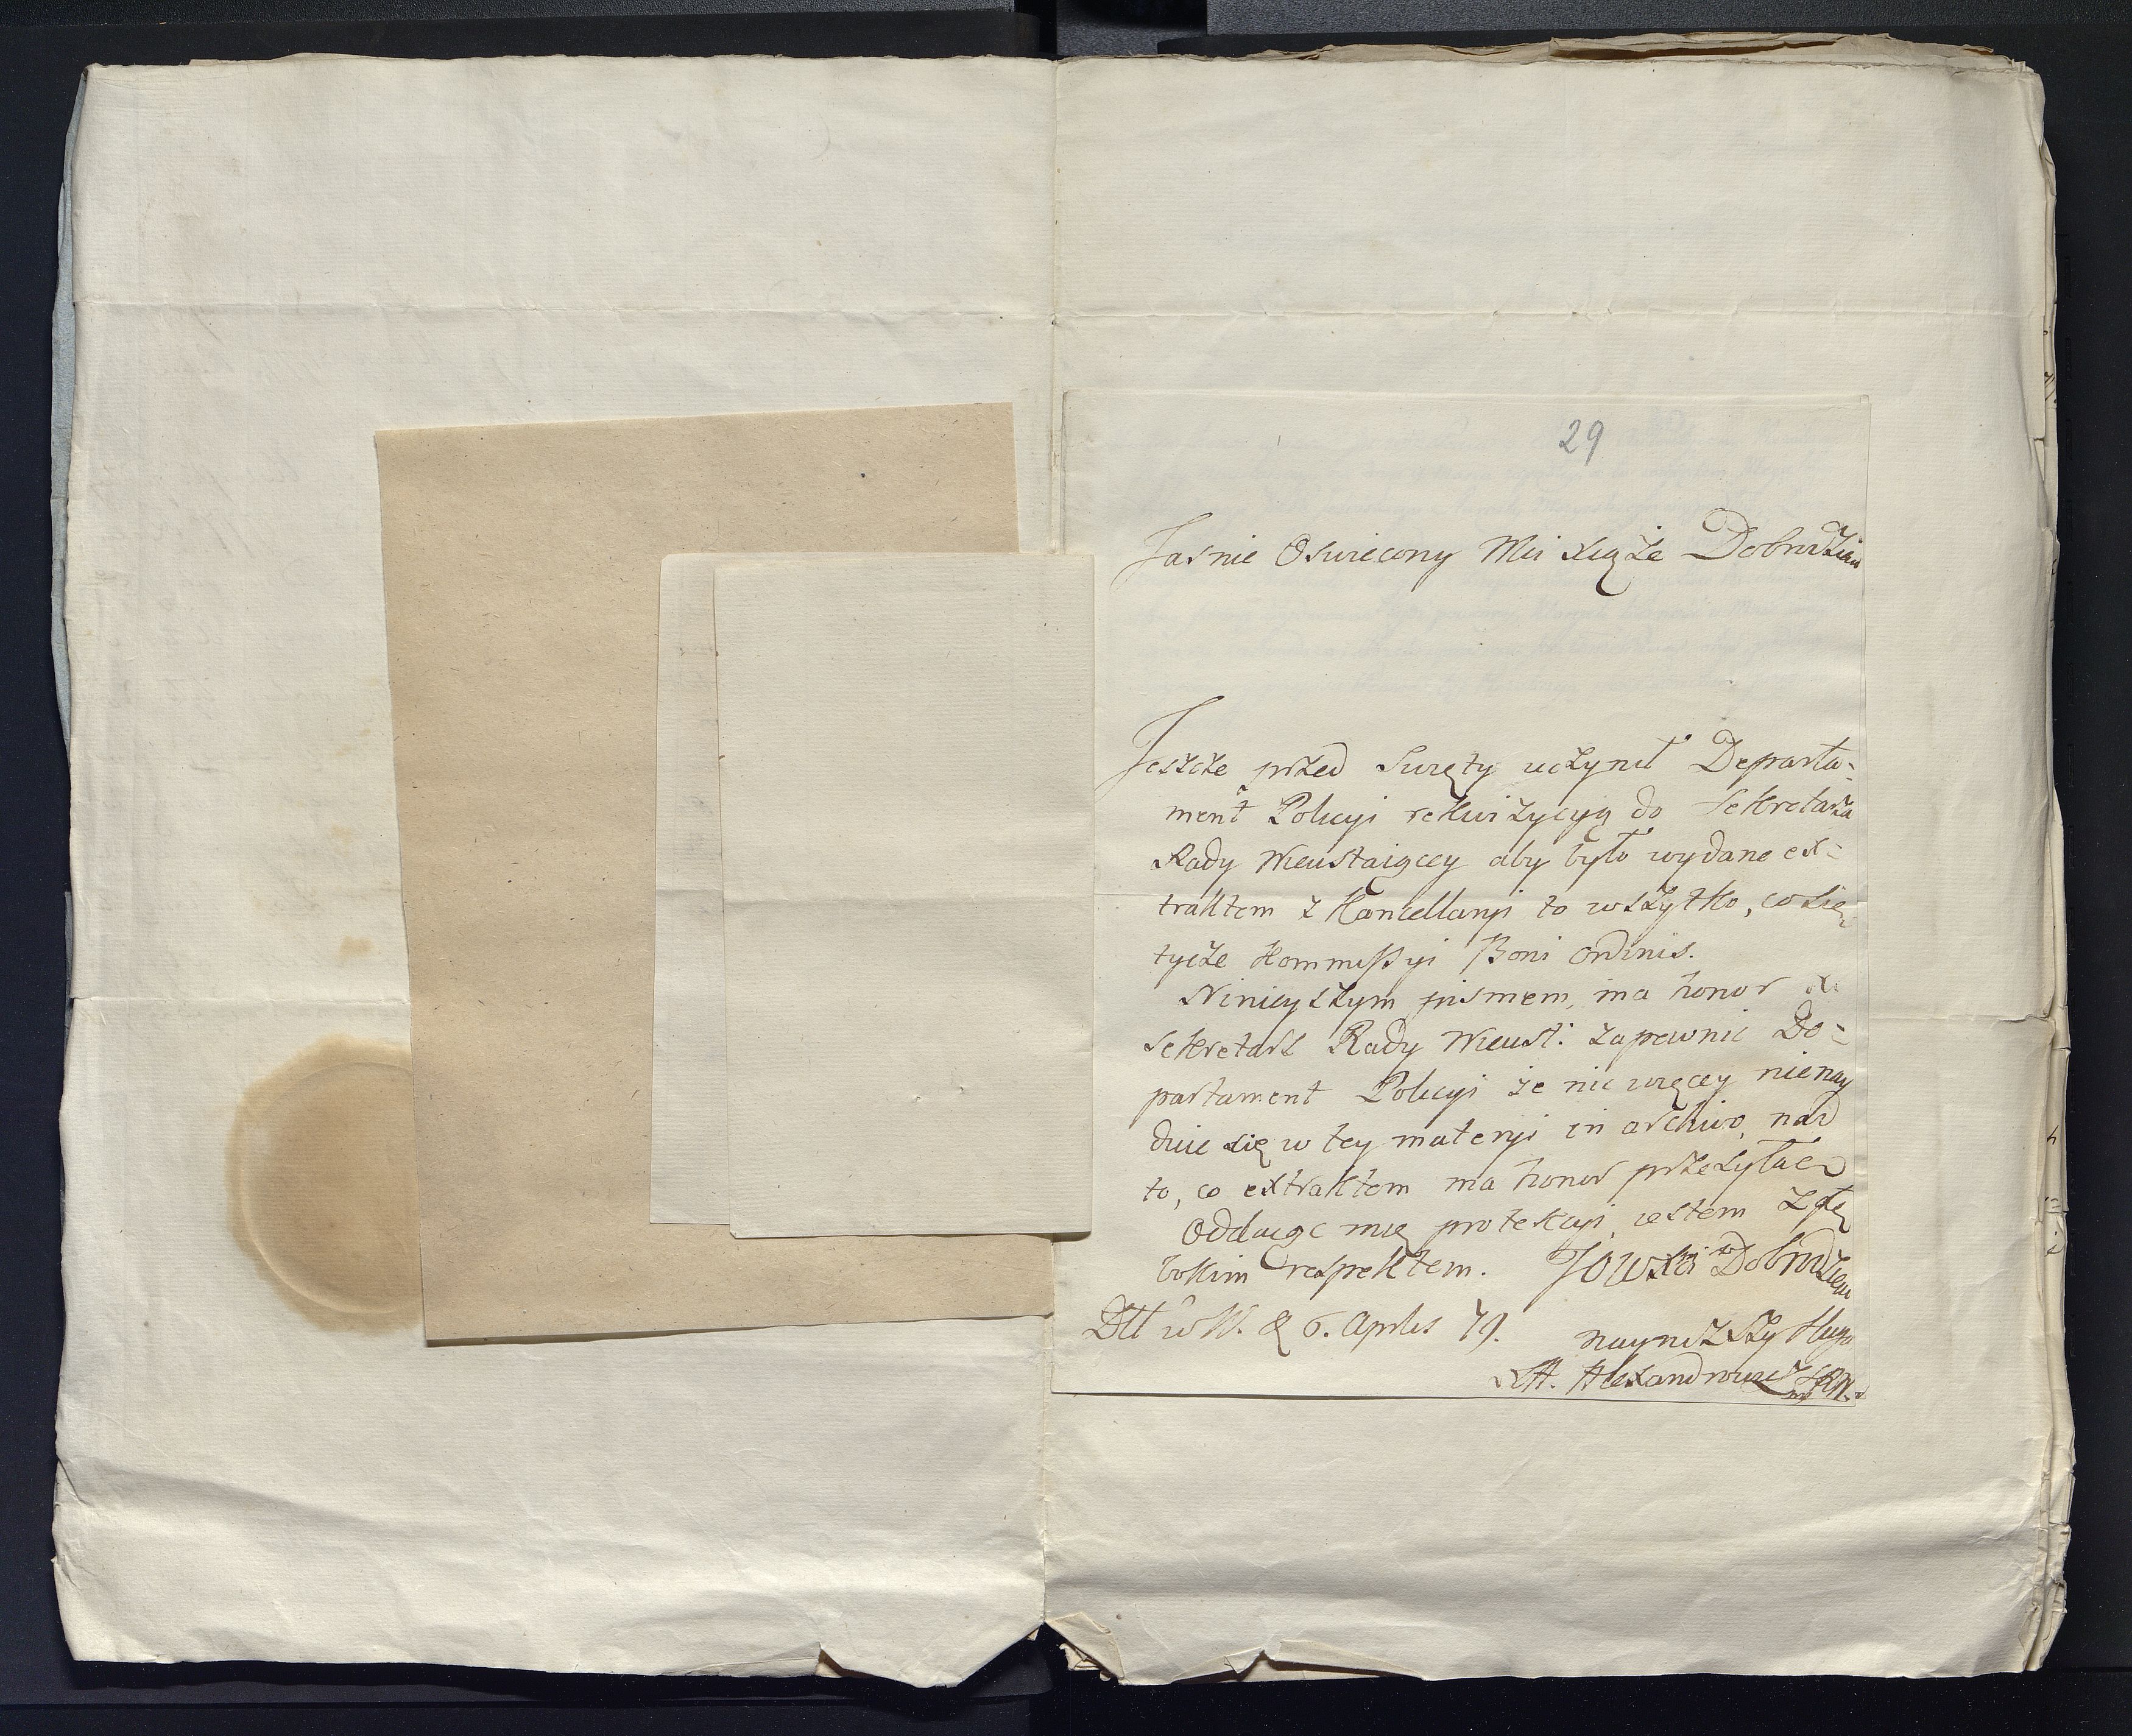 29
Jasnie Oswiecony Mci Xiąże Dobrodzieiu
Jeszcze przed Swięty uczynił Departa-
ment Policyi rekwizycyą do Sekretarza
Rady Nieustaiącey aby było wydane ex-
traktem z Kancellaryi to wszytko, co się
tycze Kommissyi Boni Ordinis.
Ninieyszym pismem, ma honor
Sekretarz Rady Nieust: zapewnic De-
partament Policyi że nic więcey nienay
duie się w tey materyi in archivo, nad
to, co extraktem ma honor przesyłac
Oddaiąc mię protekcyi iestem z głę
bokim respektem. JOWXMci Dobrodzieia
Dtt w W. d 6. Aprilis 79. nayniższy sługa
Alexandrowicz SRN.